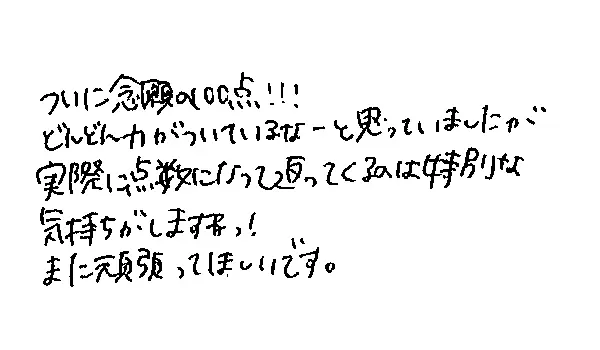 ついに念願の100点!!!
どんどん力がついているなーと思っていましたが
実際に点数になって返ってくるのは特別な
気持ちがしますねっ!
また頑張ってほしいです。